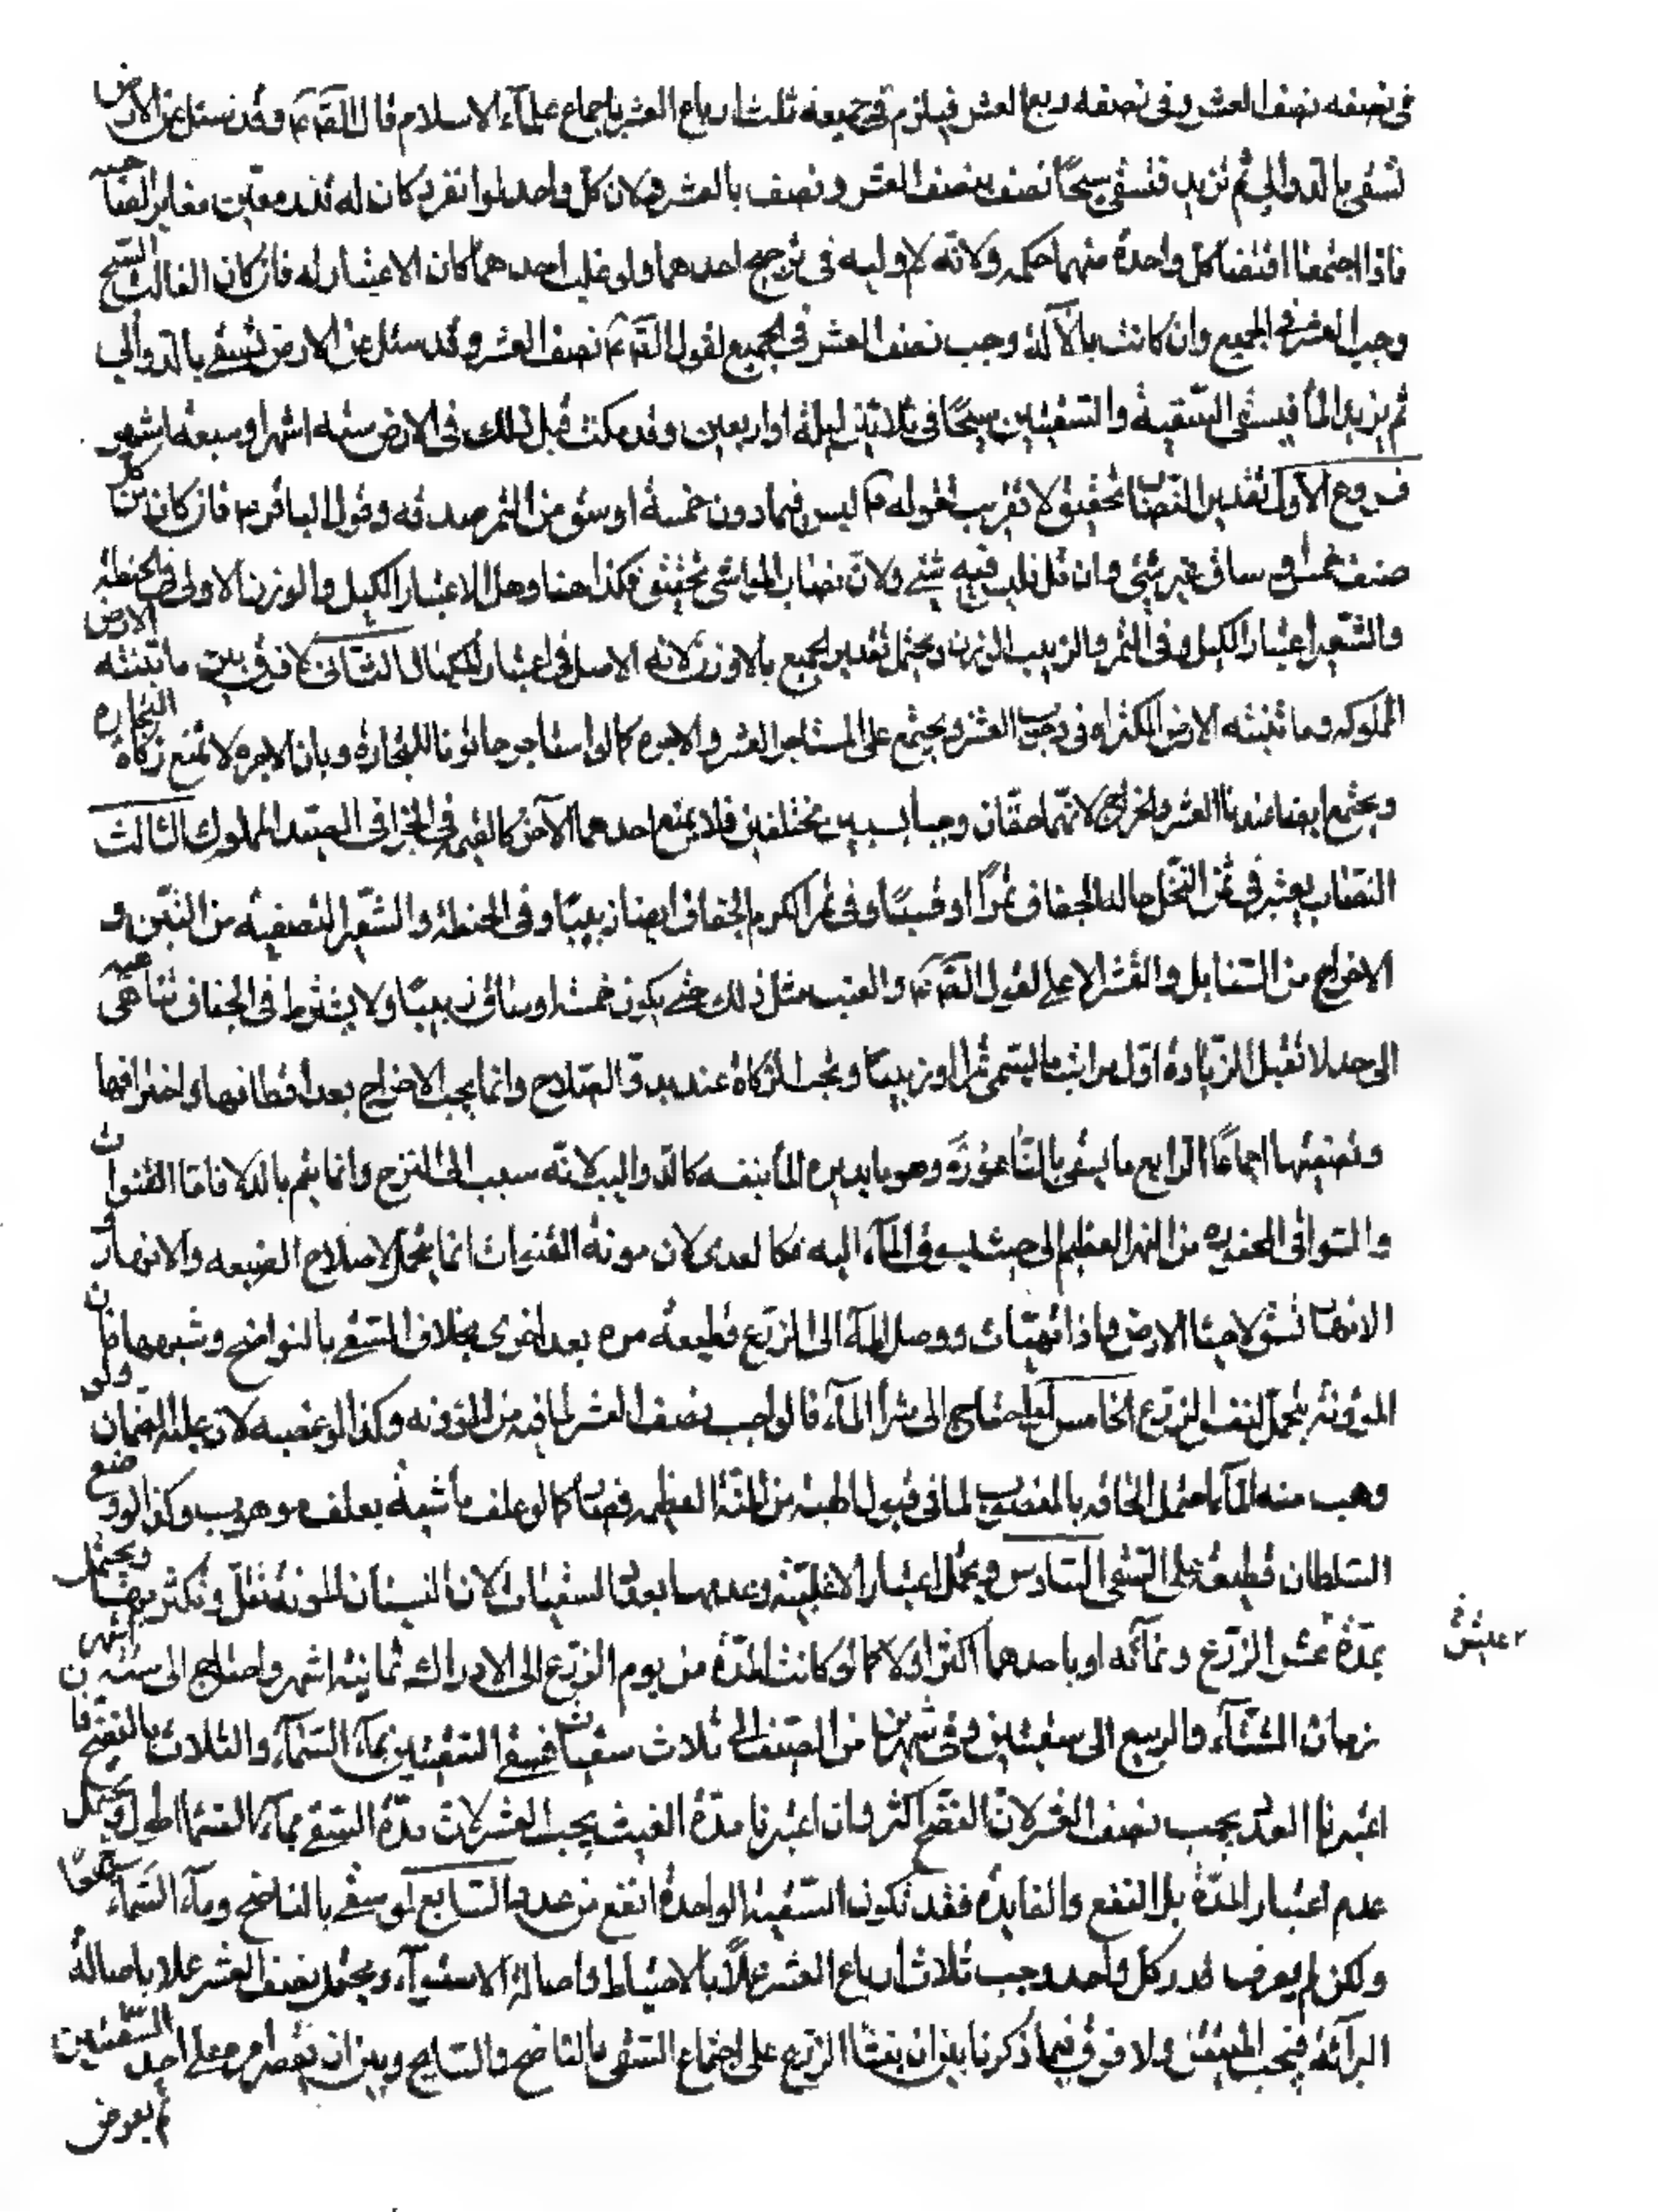 في نصفه نصف العشر وفي نصفه ربع العشر فيلزم في جميعه ثلثة ارباع العشر باجماع علماء الاسلام قال الصّ ع وقد سئل عن الارض
تسقى بالدوالي ثم تزيد فتسقى سيحًا نصف بنصف العشر ونصف بالعشر ولان كل واحد لو انفرد كان له قدر معين مغاير لصاحبه
فاذا اجتمعا اقتضا كل واحدة منهما حكمه ولانّه لا اوليه في ترجيح احدهما ولو غلب احدهما كان الاعتبار له فان كان الغالب السّيح
وجب العشر في الجميع وان كانت بالآلة وجب نصف العشر في الجميع لقول الصّ ع نصف العشر وقد سئل عن الارض تسقى بالدوالي
ثم يزيد الماء فيسقى السّقية والسقيتين سيحًا في ثلاثين ليلة او اربعين وقد مكث قبل ذلك في الارض ستة اشهر او سبعة اشهر
فروع الاول تقدير النصاب تحقيق لا تقريب لقوله ع ليس فيما دون خمسة اوسق من التمر صدقه وقول الباقر ع فان كان من كل
صنف خمسة اوساق غير شئ وان قل فليس فيه شئ ولان نصاب المواشي تحقيق فكذا هنا وهل الاعتبار الكيل والوزن الاولى في الحنطة
والشعير اعتبار الكيل وفي التمر والزبيب الوزن ويحتمل تقدير الجميع بالاوزن لانه الاصل في اعتبار المكيال الثاني لا فرق بين ما تنبته الارض
المملوكه وما تنبته الارض المكتراه في وجوب العشر ويجتمع على المستاجر العشر والاجره كما لو استاجر حانوتا للتجارة وبان الاجره لا تمنع زكاة التجاره
ويجتمع ايضا عندنا العشر والخراج لانهما حقان وجبا بسببين مختلفين فلا يمنع احدهما الآخر كالقيمة والجزا في الصيد المملوك الثالث
النصاب يعتبر في ثمن النخل حالة الجفاف تمرًا او قسبًا وفي ثمر الكرم الجفاف ايضا زبيبًا وفي الحنطة والشعير التصفية من التبن و
الاخراج من السنابل والقشر الاعلى لقول الصّ ع والعنب مثل ذلك حتى يكون خمسة اوساق زبيبًا ولا يشترط في الجفاف تناهيه
الى حد لا تقبل الزيادة اوّل مراتب ما يسمى تمرا او زبيبًا وتجب الزكاة عند بدوّ الصلاح وانما يجب الاخراج بعد اقتطافها واخترافها
وتصفيتها اجماعًا الرابع ما يسقى بالناعورة وهو ما يديره الماء بنفسه كالدواليب لانه سبب الى النزح وانما يتم بالدلا فاما القنوات
والسواقي المحفوره من النهر العظيم الى حيث يسوق الماء اليه فكالعذي لان مونة القنوات انما تحمل لاصلاح الضيعه والانهار و
الانهار تشق لاحيا الارض فاذا تهيات ووصل الماء الى الزرع قطيعة مرة بعد اخرى بخلاف السّقي بالنواضح وشبهها فان
المؤونة تتحمل لنفس الزرع الخامس لو احتاج الى شرا الماء فالواجب نصف العشر لما فيه من المؤونه وكذا لو غصبه لان عليه الضمان ولو
وهب منه الماء احتمل الحاقه بالمغصوب لما في قبول الهبة من المنة العظيمه كما لو علف ماشية بعلف موهوب وكذا لو وضع
السلطان قطيعة على السّقي السّادس ويحتمل اعتبار الاغلبيّة وعدمها بعدد السقيات لان المونة تقل وتكثر بها ويحتمل
بمدّة عيش الزرع ونمائه او باحدهما اكثر او لا كما لو كانت المدة من يوم الزرع الى الادراك ثمانية اشهر واحتاج الى ستة اشهر من
زمان الشتاء والربيع الى سقيتين وفي شهرين من الصيف الى ثلاث سقيات فسقي السقيتين بماء السّماء والثلاث بالنضح فا
اعتبرنا العدد يجب نصف العشر لان النضح اكثر وان اعتبرنا مدة الغيث يجب العشر لان مدّة السّقي بماء السّماء اطول ويحتمل
عدم اعتبار المدّة بل النفع والفايدة فقد تكون السّقية الواحدة انفع من عدة السّابع لو سقي بالناضح وماء السّماء معًا
ولكن لم يعرف قدر كل واحد وجب ثلاث ارباع العشر عملاً بالاحتياط واصالة الاستوآء ويحتمل نصف العشر عملا باصالة
البرآئة فيجب المتيقن ولا فرق فيما ذكرنا بين ان ينشا الزرع على اجتماع السّقي بالناضح والسّايح وبين ان يقصر امره على احد السّقيتين
ثم يعرض
عيش